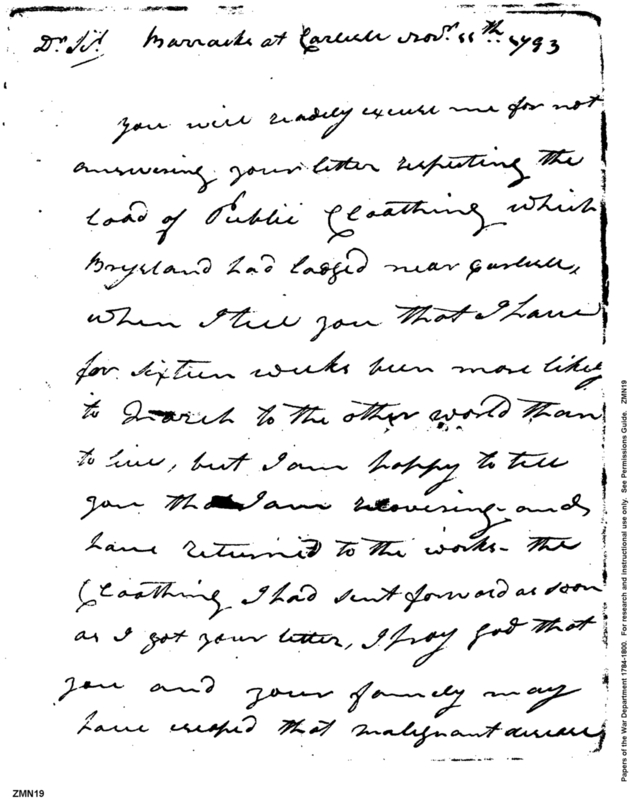 Dr. Sir Barracks at Carlisle Novr. 11th 1793
you will readily excuse me for not
answering your letter respecting the
load of Public Cloathing which
Bryeland had lodged near Carlisle,
when I tell you that I have
for sixteen weeks been more likely
to March to the other world than
to live, but I am happy to tell
you that I am recovering - and
have returned to the works - the
Cloathing I had sent forward as soon
as I got your letter, I pray god that
you and your family may
have escaped that malignant disease
ZMN19
Papers of the War Department 1784-1800. For research and instructional use only. See Permissions Guide. ZMN19